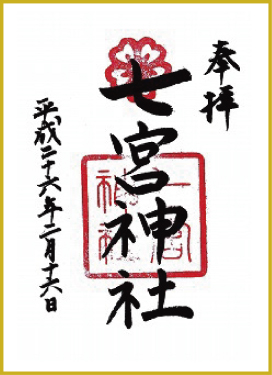 奉拝
七宮神社
平成二十六年二月十六日